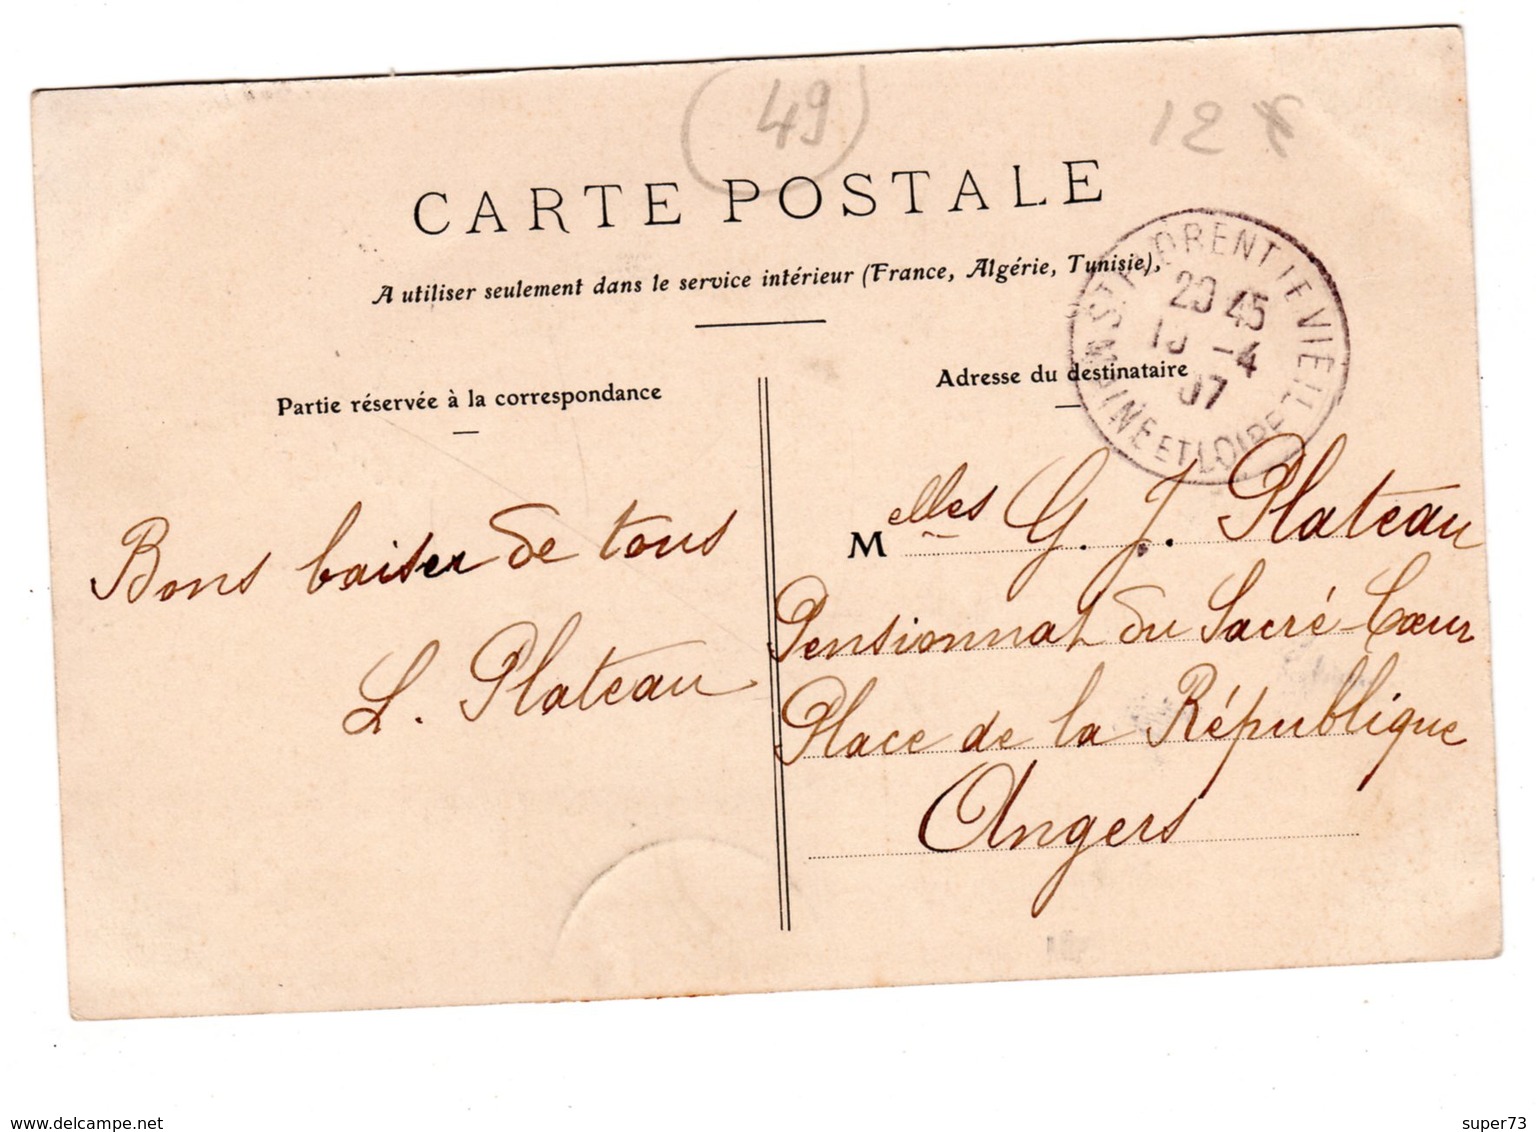 49
12 €
CARTE POSTALE
A utiliser seulement dans le service intérieur (France, Algérie, Tunisie),
ST FLORENT LE VIEIL
20 45
-4
07
MAINE ET LOIRE
Partie réservée à la correspondance
Bons baiser de tous
L. Plateau
Adresse du destinataire
Melles G. J. Plateau
Pensionnat du Sacré-Cœur
Place de la République
Angers
www.delcampe.net
super73